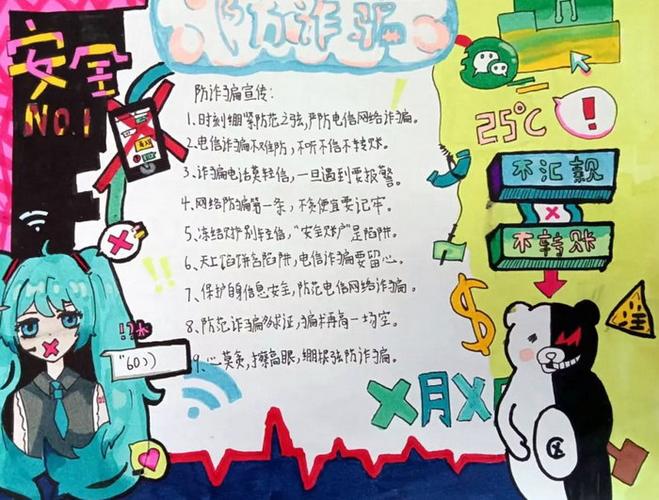 防诈骗
安全
NO.1
防诈骗宣传:
1、时刻绷紧防范之弦,严防电信网络诈骗。
2、电信诈骗不难防,不听不信不转账。
3、诈骗电话莫轻信,一旦遇到要报警。
4、网络防骗第一条,不贪便宜要记牢。
5、冻结账户别轻信,“安全账户”是陷阱。
6、天上馅饼含陷阱,电信诈骗要留心。
7、保护自身信息安全,防范电信网络诈骗。
8、防范诈骗多求证,骗术再高一场空。
9、心莫贪,擦亮眼,绷紧弦防诈骗。
25℃
!
不汇款
不转账
$
X月X日
!!
!?